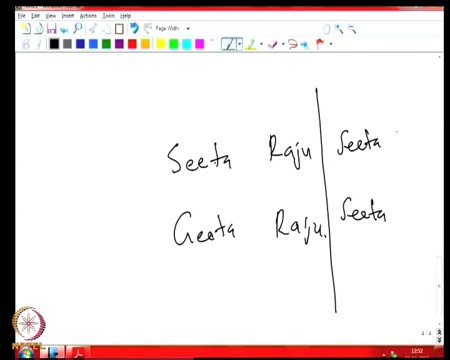 File Edit View Insert Actions Tools Help
Page Width
Seeta Raju Seeta
Geeta Raju. Seeta
NPTEL
12:52